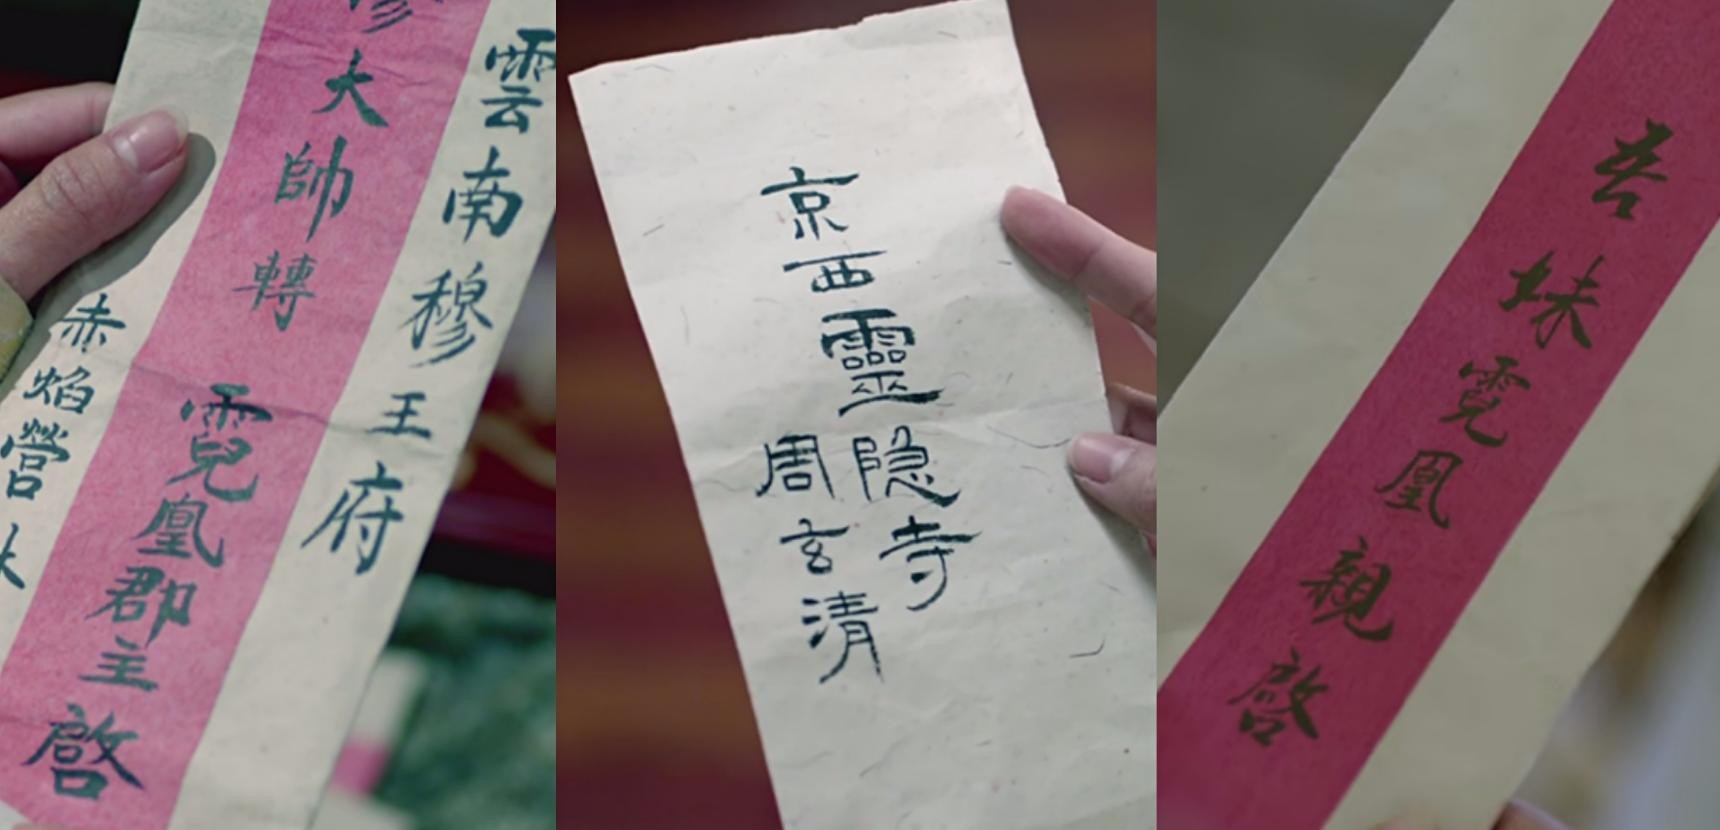 雲南穆王府
穆大帥轉
霓凰郡主啓
赤焰營林
京西靈隐寺
周玄清
吾妹霓凰親啓